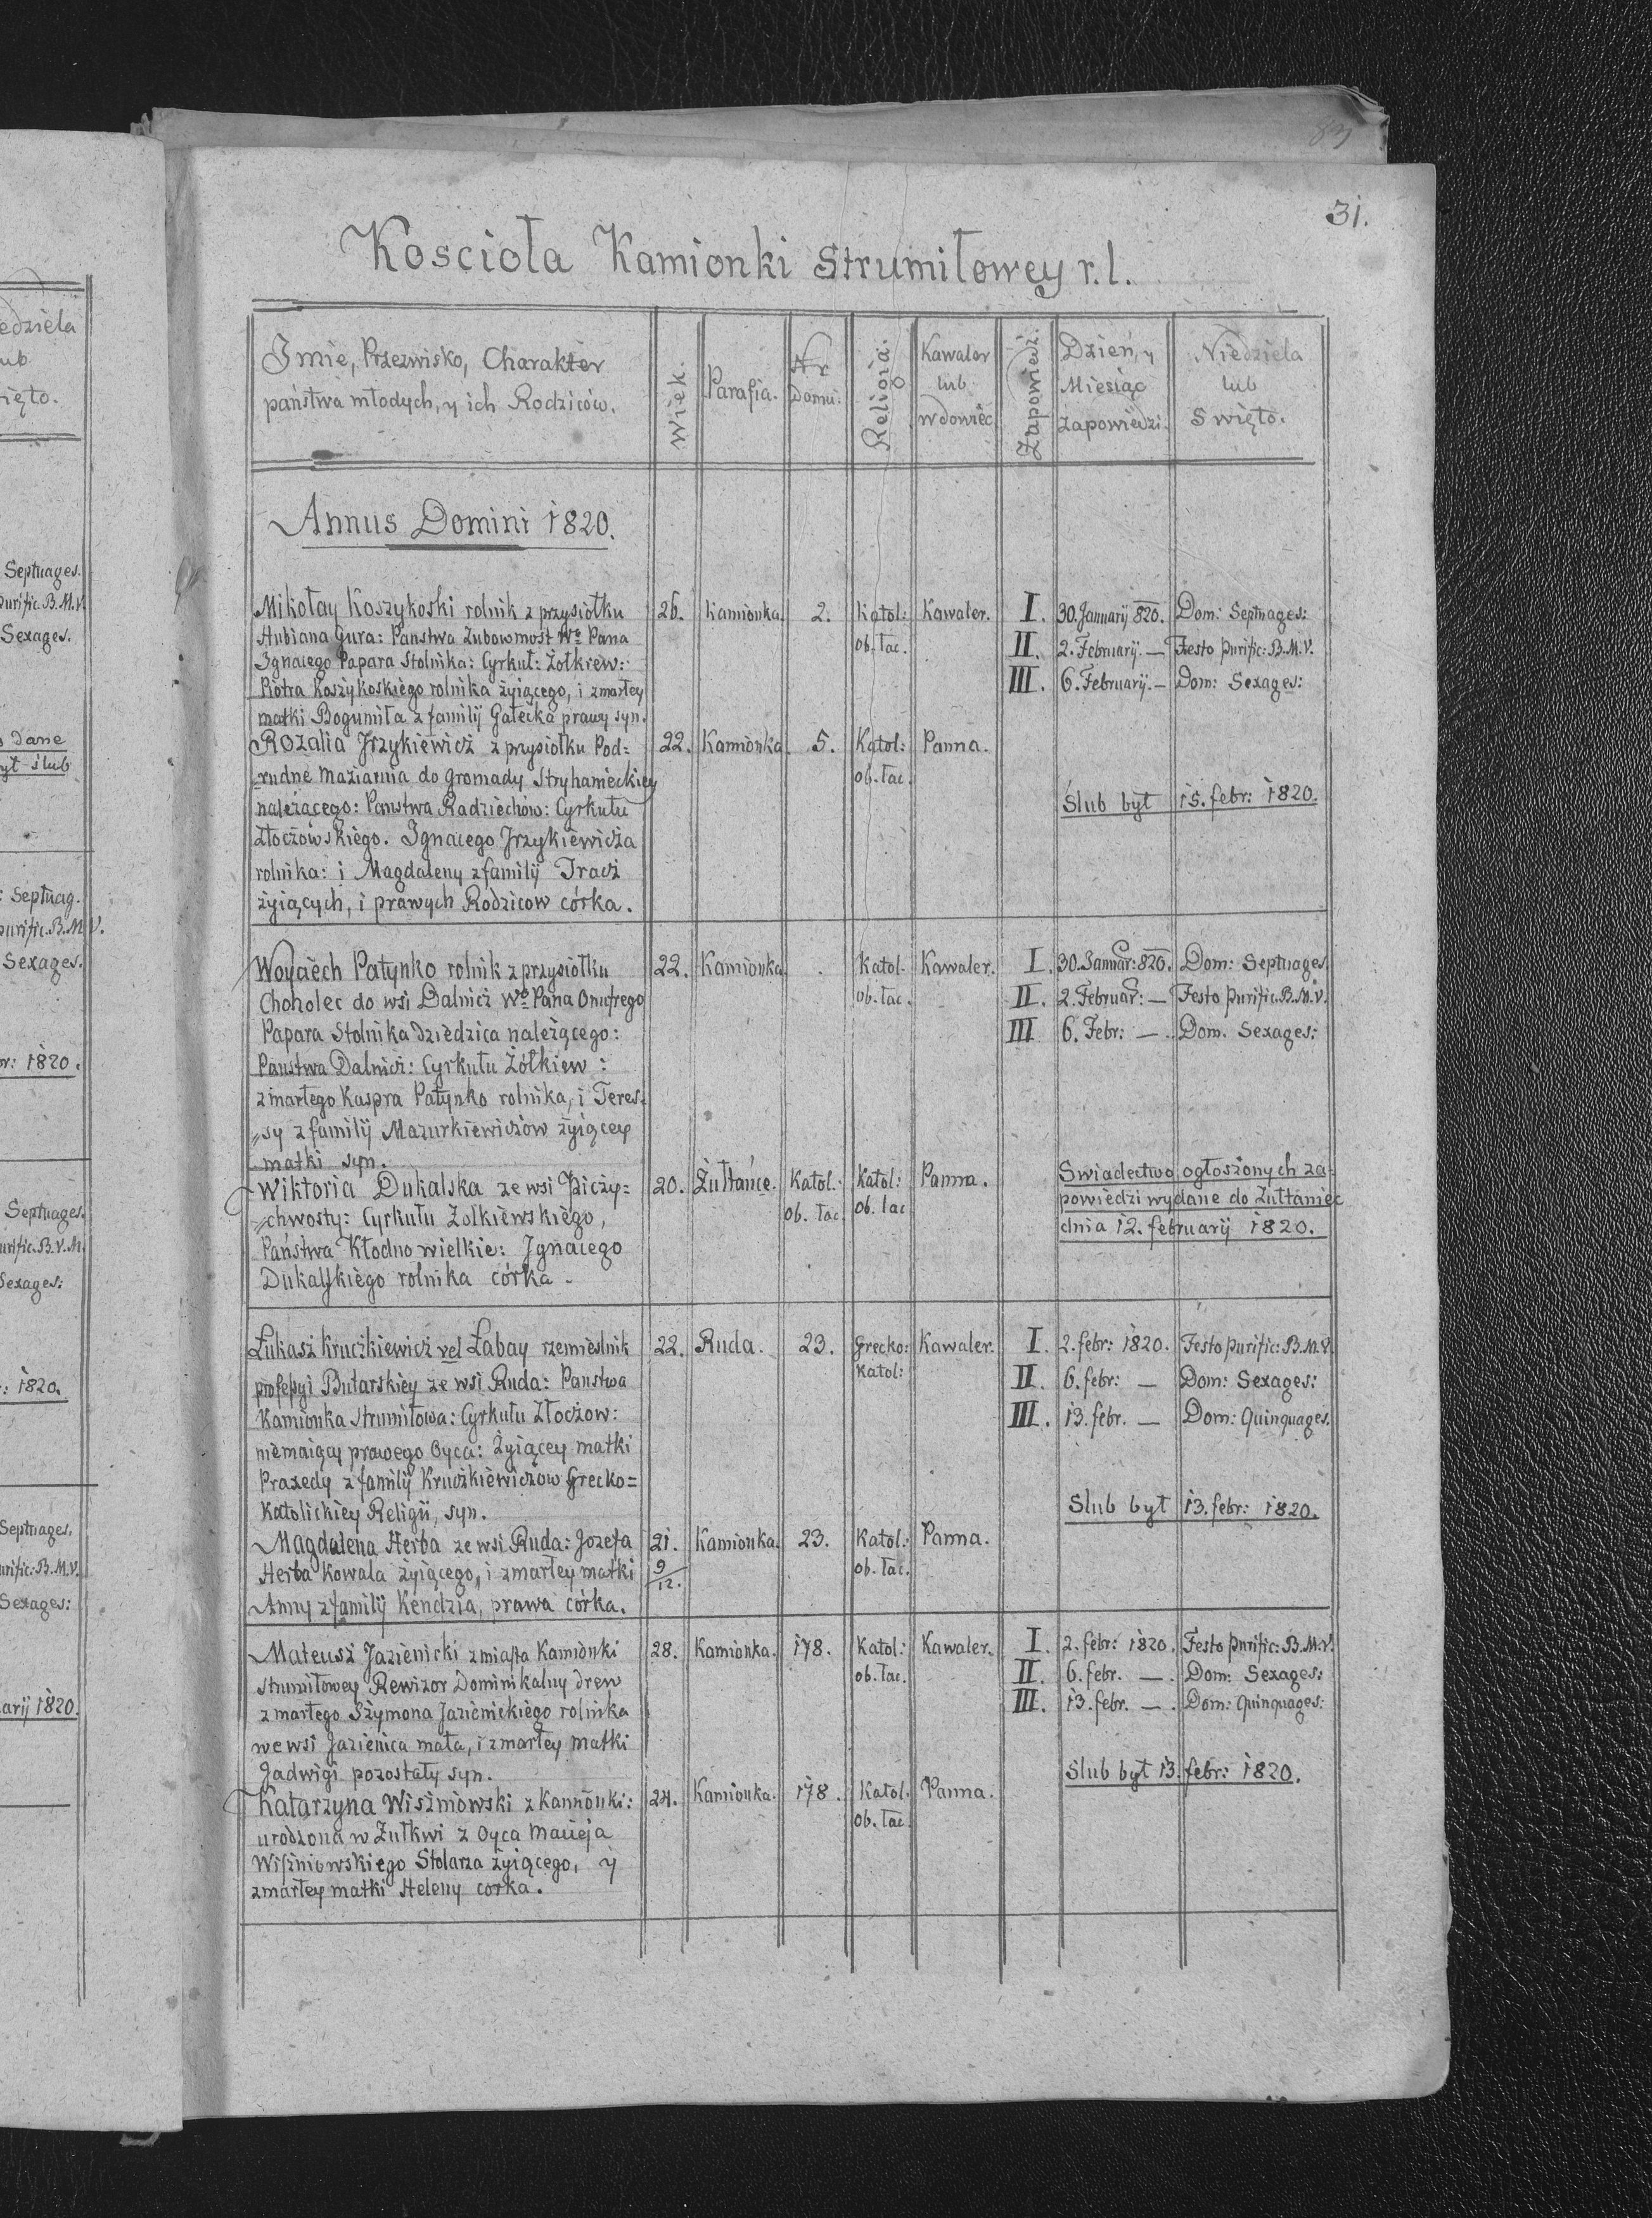 83
31.
Kosciota Kamionki Strumiłowey r.l.
Jmie, Przezwisko, Charakter
państwa młodych, y ich Rodziców.
Wiek.
Parafia.
Nr
Domu:
Religia:
Kawaler
lub
wdowiec
Zapowiedź.
Dzień, y
Miesiąc
Zapowiedzi.
Niedziela
lub
Swięto.
Annus Domini 1820.
Mikołay Koszykoski rolnik z przysiołku 26. Kamionka. 2. Katol: Kawaler. I. 30. Januarij 820. Dom: Septuages:
Hubiana Gura: Panstwa Zubowmost Wo Pana ob. łac. II. 2. Februarij. — Festo Purific: B.M.V.
Ignacego Papara Stolnika: Cyrkuł: Żołkiew: III. 6. Februarij. — Dom: Sexages:
Piotra Koszykoskiego rolnika żyiącego, i zmarłey
matki Bogumiła z familij Gałecka prawy syn.
Rozalia Jrzykiewicz z prysiołku Pod= 22. Kamionka. 5. Katol: Panna.
rudne Maziarnia do Gromady Stryhanieckiey ob. łac.
należącego: Panstwa Radziechów: Cyrkułu Ślub był 15. febr: 1820.
Złoczówskiego. Ignacego Jrzykiewicza
rolnika: i Magdaleny z familij Tracz
żyiących, i prawych Rodzicow córka.
Woyciech Patynko rolnik z przysiołku 22. Kamionka. . Katol. Kawaler. I. 30. Januar: 820. Dom: Septuages.
Choholec do wsi Dalnicz Wo Pana Onufrego ob. łac. II. 2. Februar: — Festo Purific. B.M.V.
Papara Stolnika Dziedzica należącego: III 6. Febr: — . Dom. Sexages:
Panstwa Dalnicz: Cyrkułu Żółkiew:
zmarłego Kaspra Patynko rolnika, i Teres=
„sy z familij Mazurkiewiczów żyiącey
matki syn.
Wiktoria Dukalska ze wsi Piczy= 20. Żułtańce. Katol.: Katol: Panna. Swiadectwo ogłoszonych za=
„chwosty: Cyrkułu Zolkiewskiego, ob. łac. ob. lac powiedzi wydane do Zułtaniec
Państwa Kłodno wielkie: Jgnacego dnia 12. februarij 1820.
Dukalskiego rolnika córka.
Łukasz Kruczkiewicz vel Łabay rzemieslnik 22. Ruda. 23. Grecko: Kawaler. I. 2. febr: 1820. Festo Purific: B.M.V.
professyi Butarskiey ze wsi Ruda: Panstwa Katol: II. 6. febr: — Dom: Sexages:
Kamionka Strumiłowa: Cyrkułu Złoczow: III. 13. febr. — Dom: Quinquages.
niemaiący prawego Oyca: Żyiącey matki
Praxedy z familij Kruczkiewiczow Grecko=
Katolickiey Religii, syn. Slub był 13. febr: 1820.
Magdalena Herba ze wsi Ruda: Jozefa 21. Kamionka. 23. Katol.: Panna.
Herba Kowala żyiącego, i zmarłey matki 9/12. ob. łac.
Anny z familij Kendzia, prawa córka.
Mateusz Jazienicki z miasta Kamionki 28. Kamionka. 178. Katol: Kawaler. I. 2. febr: 1820. Festo Purific: B.M.V.
Strumiłowey Rewizor Dominikalny drew ob. łac. II. 6. febr. — . Dom: Sexages:
zmarłego Szymona Jazienickiego rolnika III. 13. febr. — . Dom: Quinquages:
we wsi Jazienica mała, i zmarłey matki
Jadwigi pozostały syn. Slub był 13. febr: 1820.
Katarzyna Wiszniowski z Kamionki: 24. Kamionka. 178. Katol. Panna.
urodzona w Zułkwi z Oyca Macieja ob. łac.
Wiszniowskiego Stolarza żyiącego, y
zmarłey matki Heleny corka.
edziela
ub
ięto.
Septuages.
Purific. B.M.V.
Sexages.
dane
ył ślub
: Septuag.
purific. B.M.V.
Sexages.
br: 1820.
Septuages.
urific. B.V.M.
Sexages:
: 1820.
Septuages.
urific: B.M.V.
Sexages:
arij 1820.